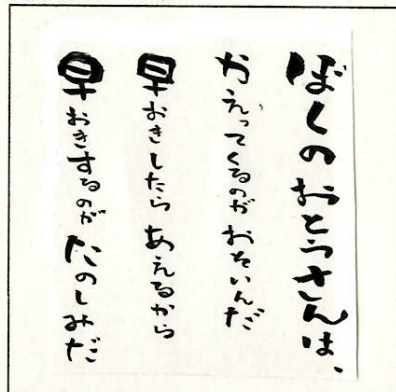 ぼくのおとうさんは、
かえってくるのがおそいんだ
早おきしたらあえるから
早おきするのがたのしみだ